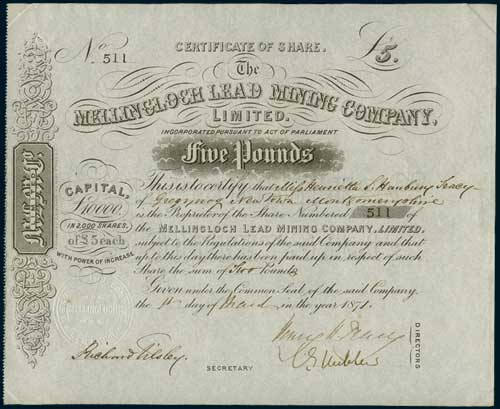 No. 511
CERTIFICATE OF SHARE.
£5.
The
MELLINGLOCH LEAD MINING COMPANY,
LIMITED.
INCORPORATED PURSUANT TO ACT OF PARLIAMENT
Five Pounds
CAPITAL,
£10000,
IN 2,000 SHARES,
of £5 each
WITH POWER OF INCREASE
This is to certify that Miss Henrietta S. Hanbury Tracy
of Newtown Montgomeryshire
is the Proprietor of the Share Numbered 511 of
the MELLINGLOCH LEAD MINING COMPANY, LIMITED.
subject to the Regulations of the said Company and that
up to this day there has been paid up in respect of such
Share the sum of Two Pounds
Given under the Common Seal of the said Company,
the 1st day of March in the year 1871.
Richard Tilsley
SECRETARY
DIRECTORS